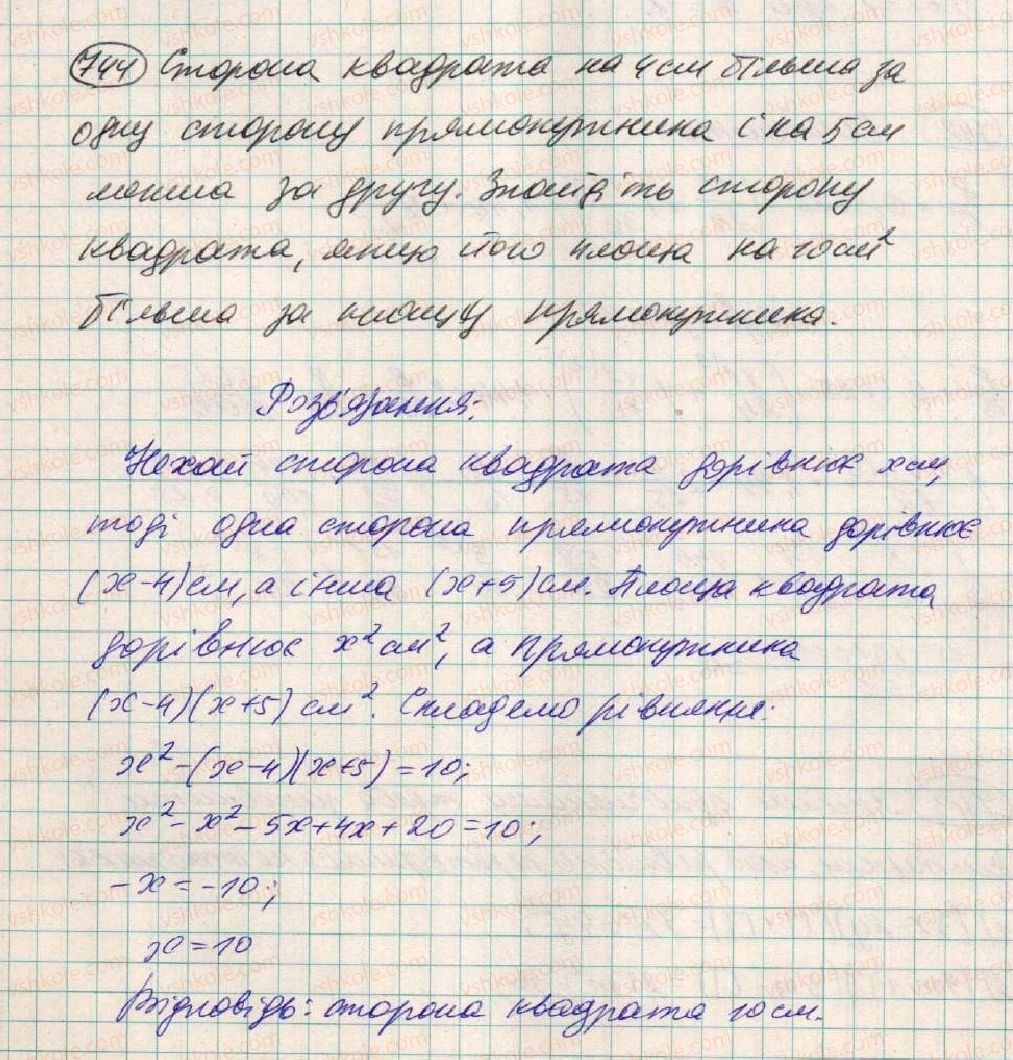 744 Сторона квадрата на 4 см більша за
одну сторону прямокутника і на 5 см
менша за другу. Знайдіть сторону
квадрата, якщо його площа на 10 см²
більша за площу прямокутника.
Розв'язання:
Нехай сторона квадрата дорівнює x см,
тоді одна сторона прямокутника дорівнює
(x-4) см, а інша (x+5) см. Площа квадрата
дорівнює x² см², а прямокутника
(x-4)(x+5) см². Складемо рівняння:
x²-(x-4)(x+5)=10;
x²-x²-5x+4x+20=10;
-x=-10;
x=10
Відповідь: сторона квадрата 10 см.